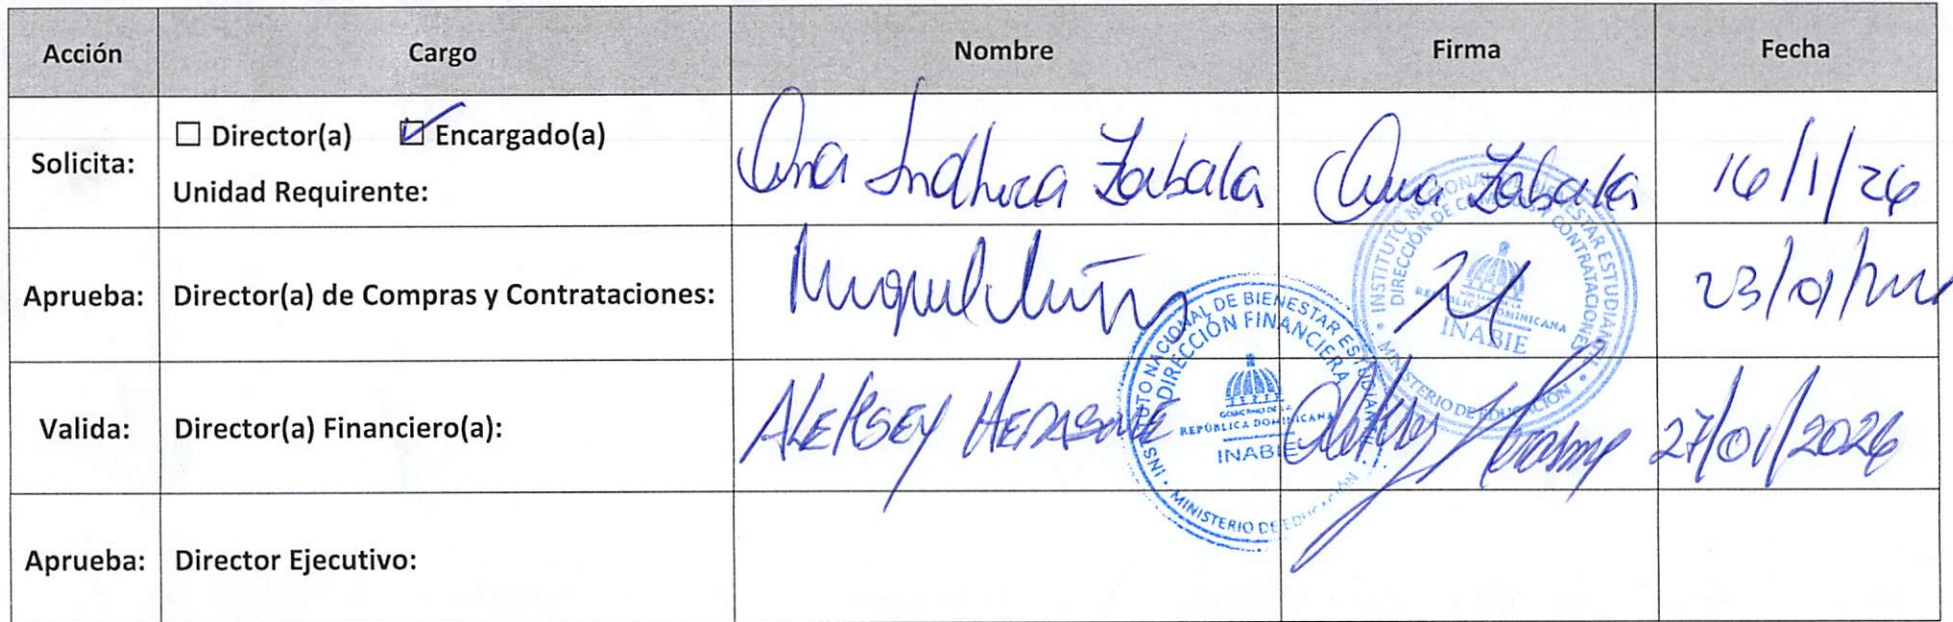 Acción Cargo Nombre Firma Fecha
Solicita: ☐ Director(a) ☑ Encargado(a)
Unidad Requirente: Ana Indhira Zabala Ana Zabala 16/1/26
Aprueba: Director(a) de Compras y Contrataciones: Miguel 23/01/
Valida: Director(a) Financiero(a): ALEKSEY 27/01/2026
Aprueba: Director Ejecutivo:
INSTITUTO NACIONAL DE BIENESTAR ESTUDIANTIL
DIRECCIÓN DE COMPRAS Y CONTRATACIONES
REPÚBLICA DOMINICANA
INABIE
MINISTERIO DE EDUCACIÓN
INSTITUTO NACIONAL DE BIENESTAR ESTUDIANTIL
DIRECCIÓN FINANCIERA
GOBIERNO DE LA
REPÚBLICA DOMINICANA
INABIE
MINISTERIO DE EDUCACIÓN